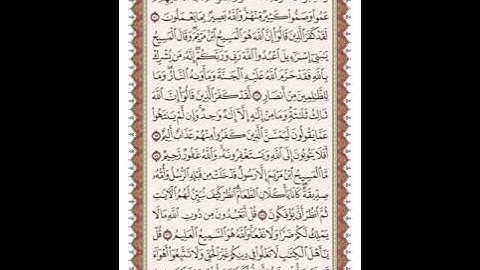 عَمُوا۟ وَصَمُّوا۟ كَثِيرٌ مِّنْهُمْ وَٱللَّهُ بَصِيرٌۢ بِمَا يَعْمَلُونَ
لَقَدْ كَفَرَ ٱلَّذِينَ قَالُوٓا۟ إِنَّ ٱللَّهَ هُوَ ٱلْمَسِيحُ ٱبْنُ مَرْيَمَ وَقَالَ ٱلْمَسِيحُ
يَٰبَنِىٓ إِسْرَٰٓءِيلَ ٱعْبُدُوا۟ ٱللَّهَ رَبِّى وَرَبَّكُمْ إِنَّهُۥ مَن يُشْرِكْ
بِٱللَّهِ فَقَدْ حَرَّمَ ٱللَّهُ عَلَيْهِ ٱلْجَنَّةَ وَمَأْوَىٰهُ ٱلنَّارُ وَمَا
لِلظَّٰلِمِينَ مِنْ أَنصَارٍ لَّقَدْ كَفَرَ ٱلَّذِينَ قَالُوٓا۟ إِنَّ ٱللَّهَ
ثَالِثُ ثَلَٰثَةٍ وَمَا مِنْ إِلَٰهٍ إِلَّآ إِلَٰهٌ وَٰحِدٌ وَإِن لَّمْ يَنتَهُوا۟
عَمَّا يَقُولُونَ لَيَمَسَّنَّ ٱلَّذِينَ كَفَرُوا۟ مِنْهُمْ عَذَابٌ أَلِيمٌ
أَفَلَا يَتُوبُونَ إِلَى ٱللَّهِ وَيَسْتَغْفِرُونَهُۥ وَٱللَّهُ غَفُورٌ رَّحِيمٌ
مَّا ٱلْمَسِيحُ ٱبْنُ مَرْيَمَ إِلَّا رَسُولٌ قَدْ خَلَتْ مِن قَبْلِهِ ٱلرُّسُلُ وَأُمُّهُۥ
صِدِّيقَةٌ كَانَا يَأْكُلَانِ ٱلطَّعَامَ ٱنظُرْ كَيْفَ نُبَيِّنُ لَهُمُ ٱلْءَايَٰتِ
ثُمَّ ٱنظُرْ أَنَّىٰ يُؤْفَكُونَ قُلْ أَتَعْبُدُونَ مِن دُونِ ٱللَّهِ مَا لَا
يَمْلِكُ لَكُمْ ضَرًّا وَلَا نَفْعًا وَٱللَّهُ هُوَ ٱلسَّمِيعُ ٱلْعَلِيمُ
قُلْ يَٰٓأَهْلَ ٱلْكِتَٰبِ لَا تَغْلُوا۟ فِى دِينِكُمْ غَيْرَ ٱلْحَقِّ وَلَا تَتَّبِعُوٓا۟ أَهْوَآءَ